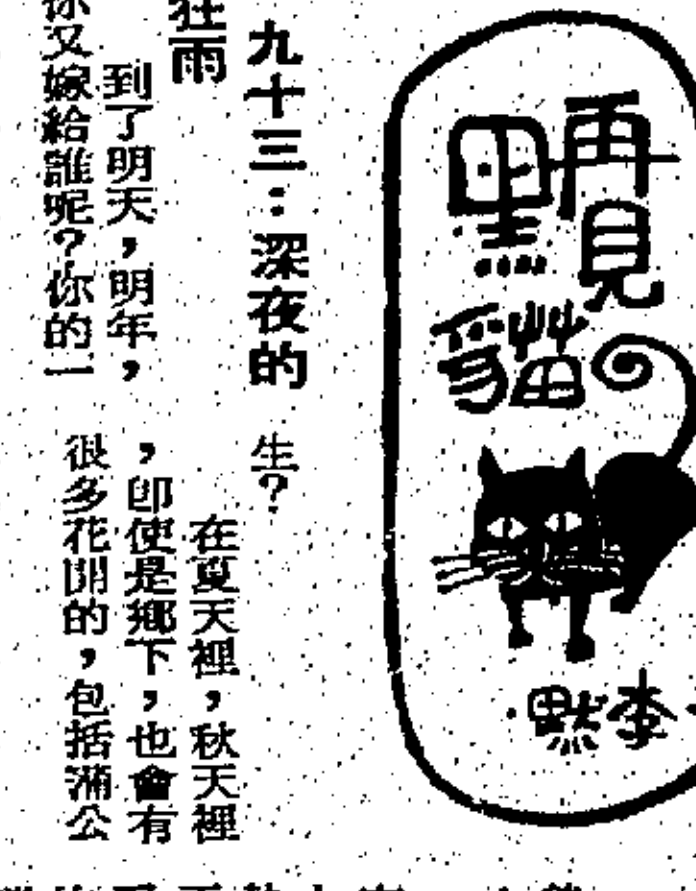 再見
黑貓
李默
九十三：深夜的
狂雨
到了明天，明年，
你又嫁給誰呢？你的一
生？
在夏天裡，秋天裡
，即使是鄉下，也會有
很多花開的，包括滿公